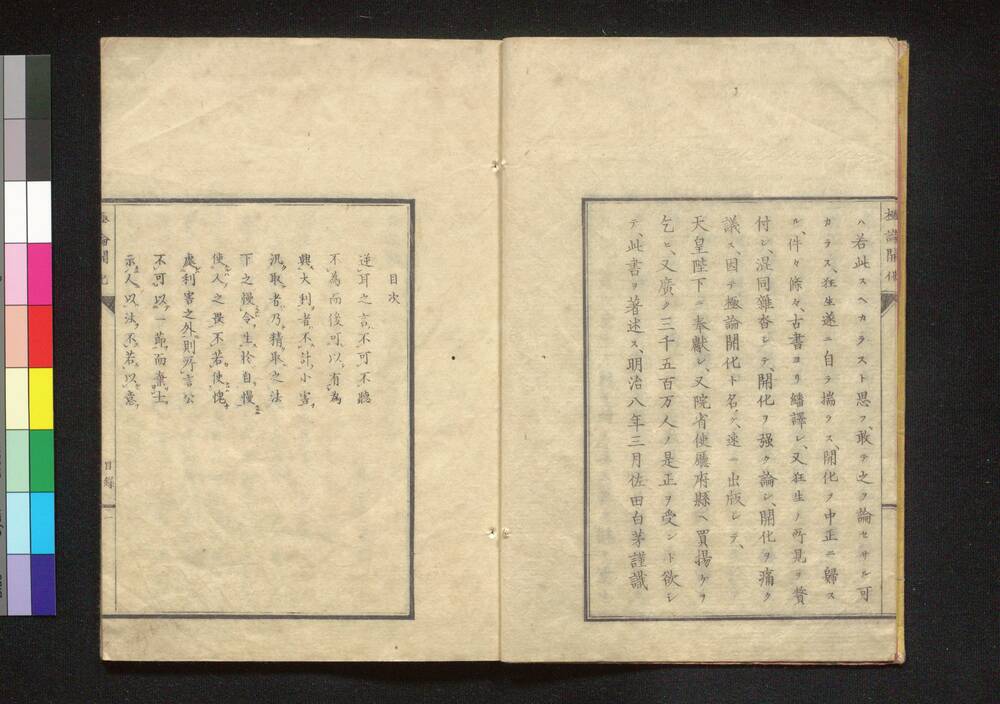 極論開化
ハ若此スヘカラスト思フ、敢テ之ヲ論セサル可
カラス、狂生遂ニ自ラ揣ラス、開化ヲ中正ニ歸ス
ル、件々條々、古書ヨリ繙譯シ、又狂生ノ所見ヲ贅
付シ、混同雜沓シテ、開化ヲ强ク論シ、開化ヲ痛ク
議ス因テ極論開化ト名ケ、速ニ出版シテ、
天皇陛下ニ奉獻シ、又院省使廳府縣ヘ買揚ケヲ
乞ヒ、又廣ク三千五百万人ノ是正ヲ受ント欲シ
テ、此書ヲ著述ス、明治八年三月佐田白茅謹識
目次
逆耳之言、不可不聽
不為而後可以有為
興大利者、不計小害
汎取者乃精取之法
下之慢令、生於自慢
使人之畏不若使愧
處利害之外則所言公
不可以一節而棄士
示人以法、不若以意
極論開化
目錄
一